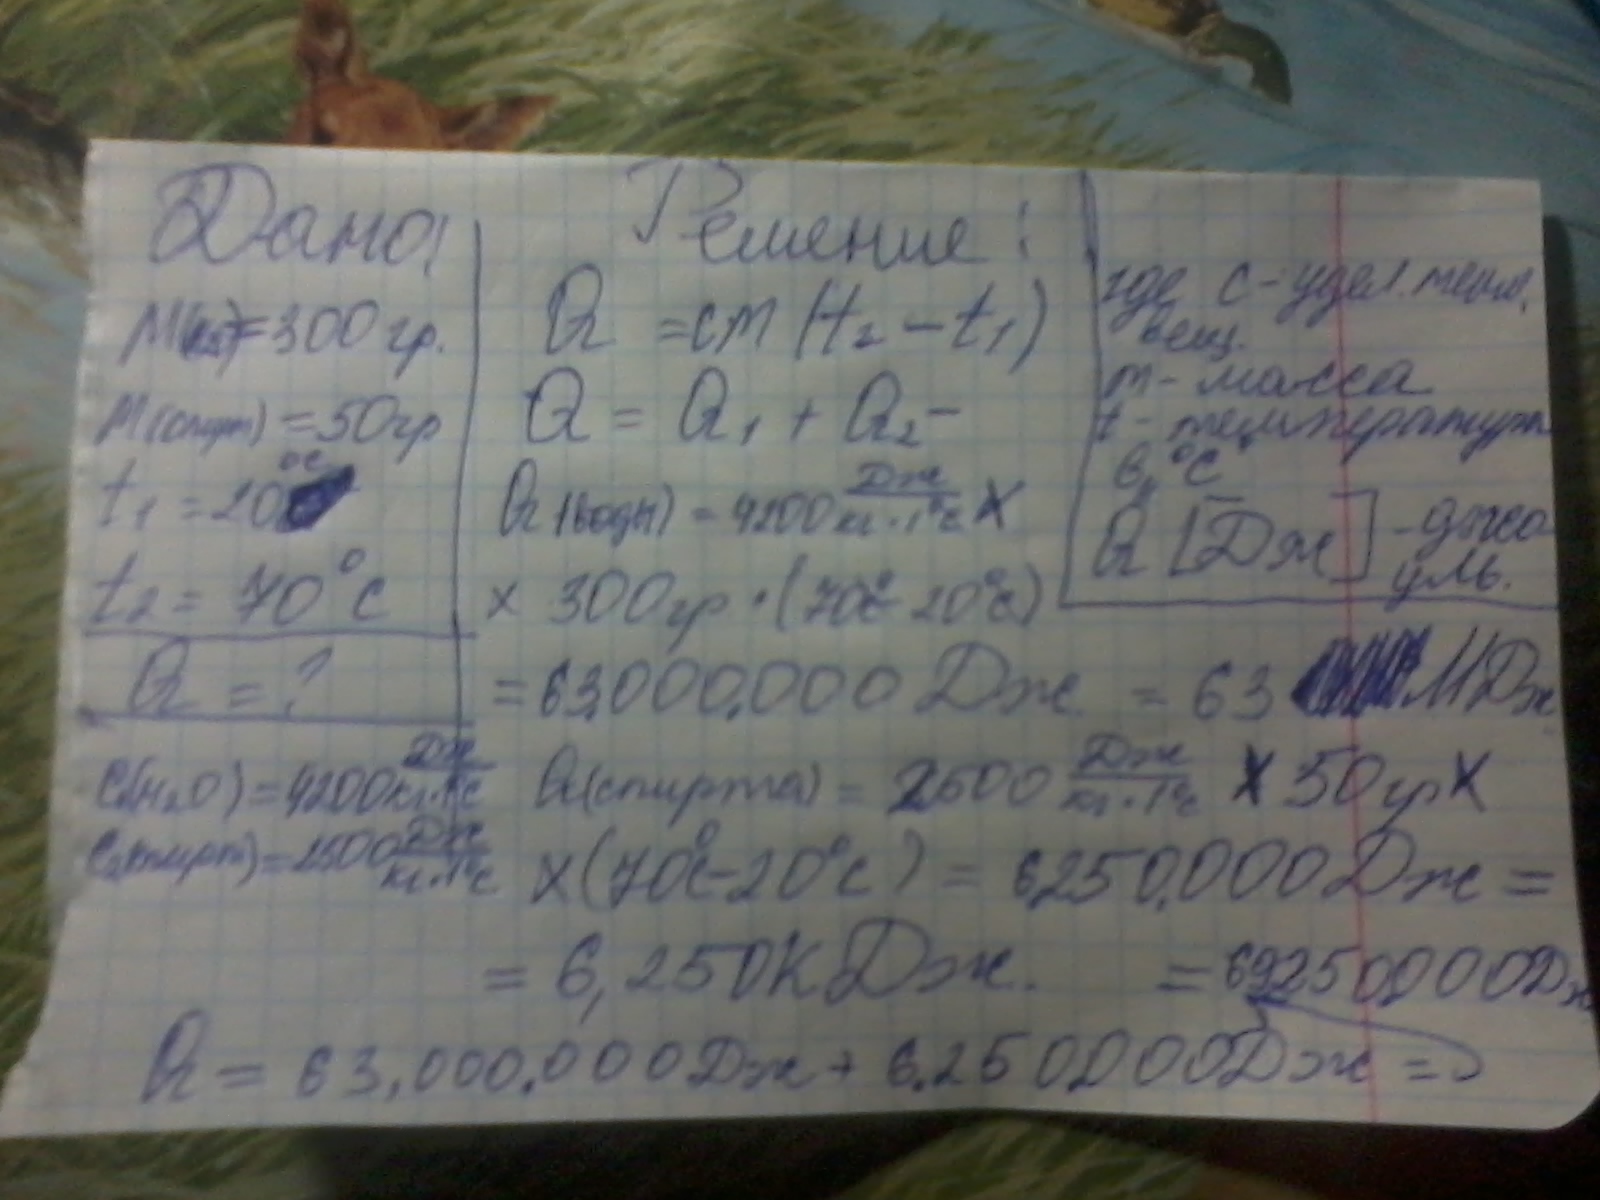 Дано:
M = 300 гр.
M(спирт) = 50 гр
t₁ = 20 °C
t₂ = 70°C
Q = ?
C(H₂O) = 4200 Дж/кг·1°C
C(спирт) = 2500 Дж/кг·1°C
Решение:
Q = cm (t₂ - t₁)
Q = Q₁ + Q₂ -
Q₁(воды) = 4200 Дж/кг·1°C ×
× 300 гр · (70°C 20°C)
= 63,000,000 Дж = 63 МДж
Q(спирта) = 2500 Дж/кг·1°C × 50 гр ×
× (70°C - 20°C) = 6250,000 Дж =
= 6,250 КДж. = 69250000 Дж
Q = 63,000,000 Дж + 6.250000 Дж =
где c - удел. тепл.
вещ.
m - масса
t - температура
в °C
Q [Дж] - джо
уль.